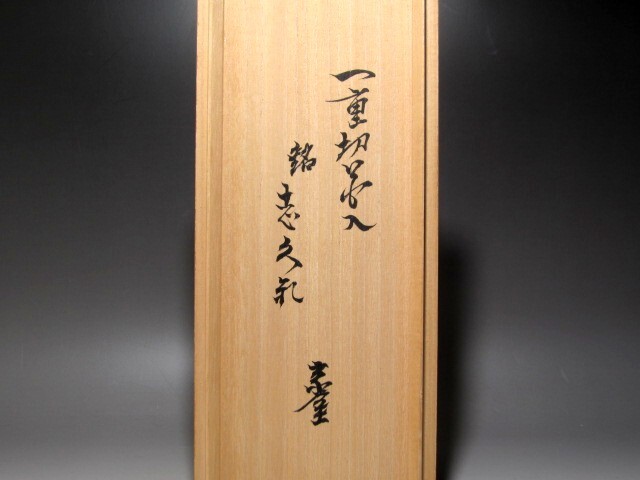 一重切花入
銘 志久礼